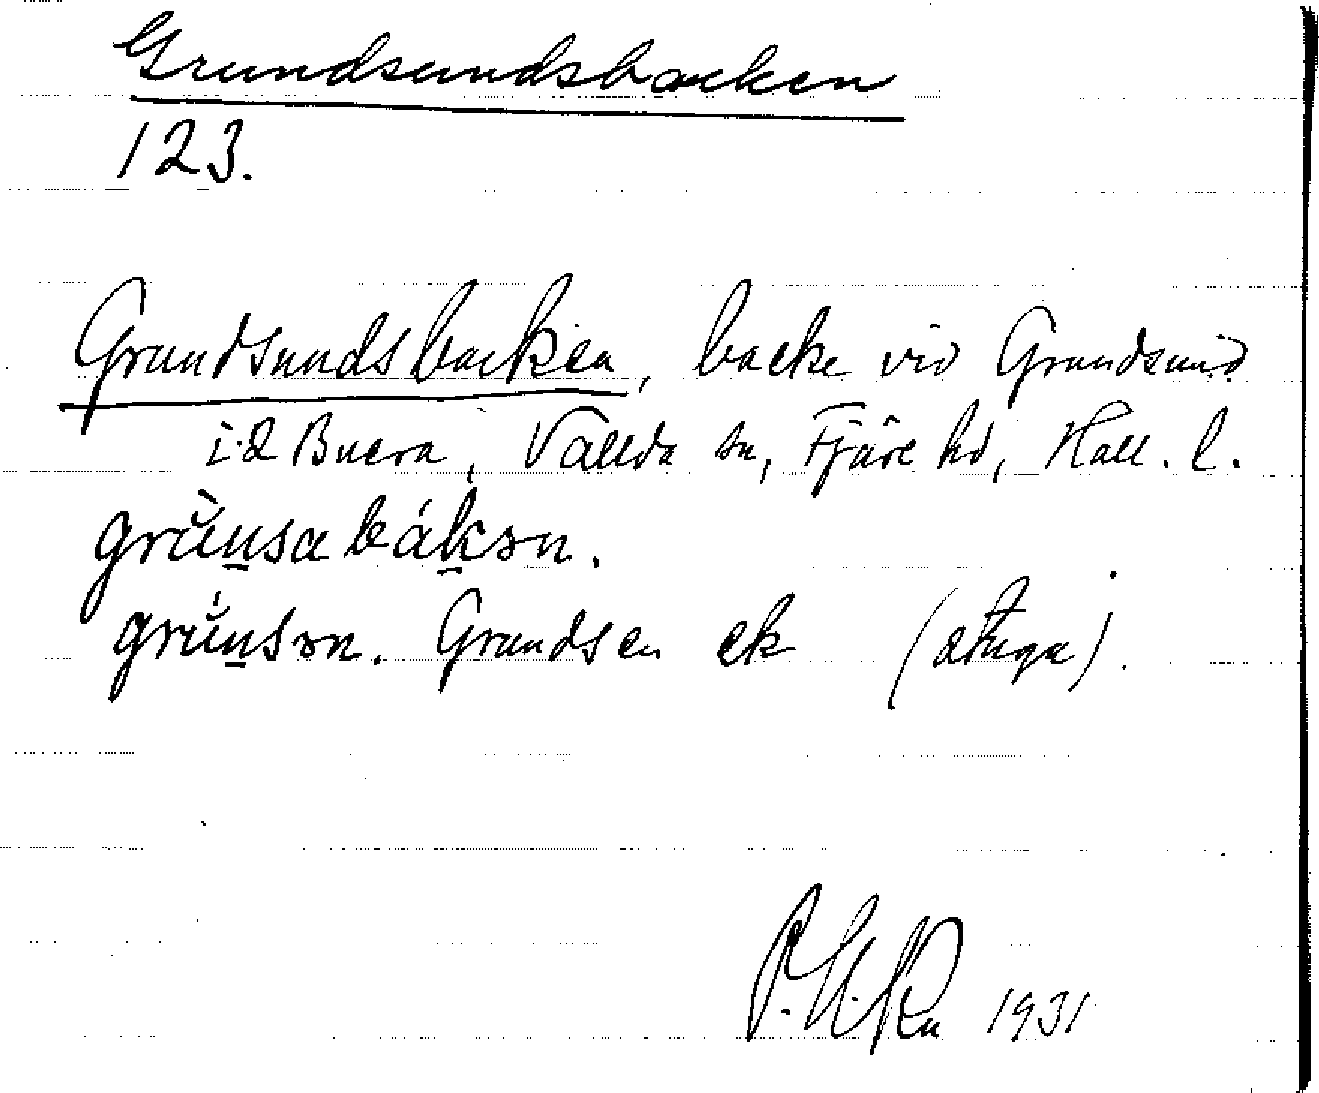 Grundsundsbacken
123.
Grundsundsbacken, backe vid Grundsund
i Buera, Vallda sn, Fjäre hd, Hall. l.
grŭnsabákən.
grŭnsən. Grundsen ek
1931